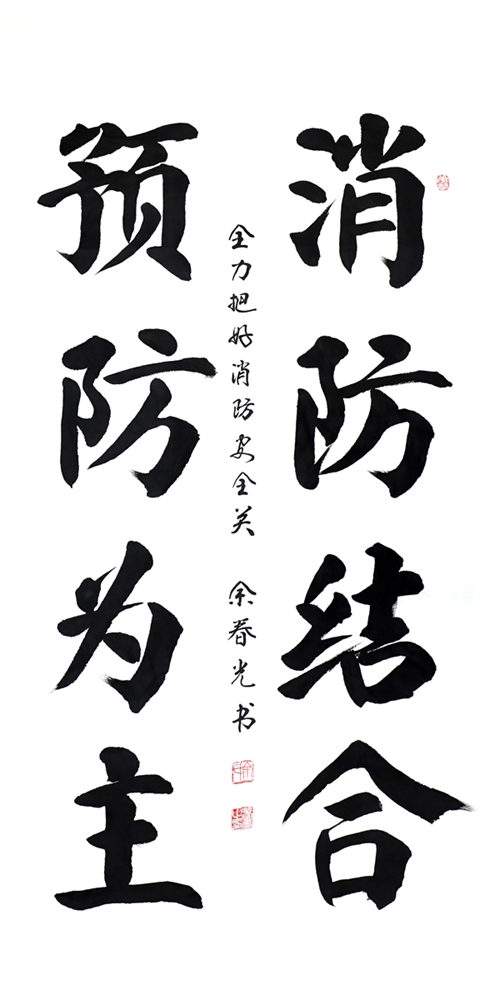 消防结合
预防为主
全力把好消防安全关 余春光书